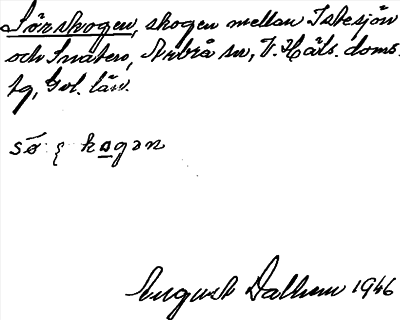 Sörskogen, skogen mellan Istesjön
och Snaten, Arbrå sn, V. Häls. doms.
tg, Gvl. län.
sö { kogən
August Dalhem 1946